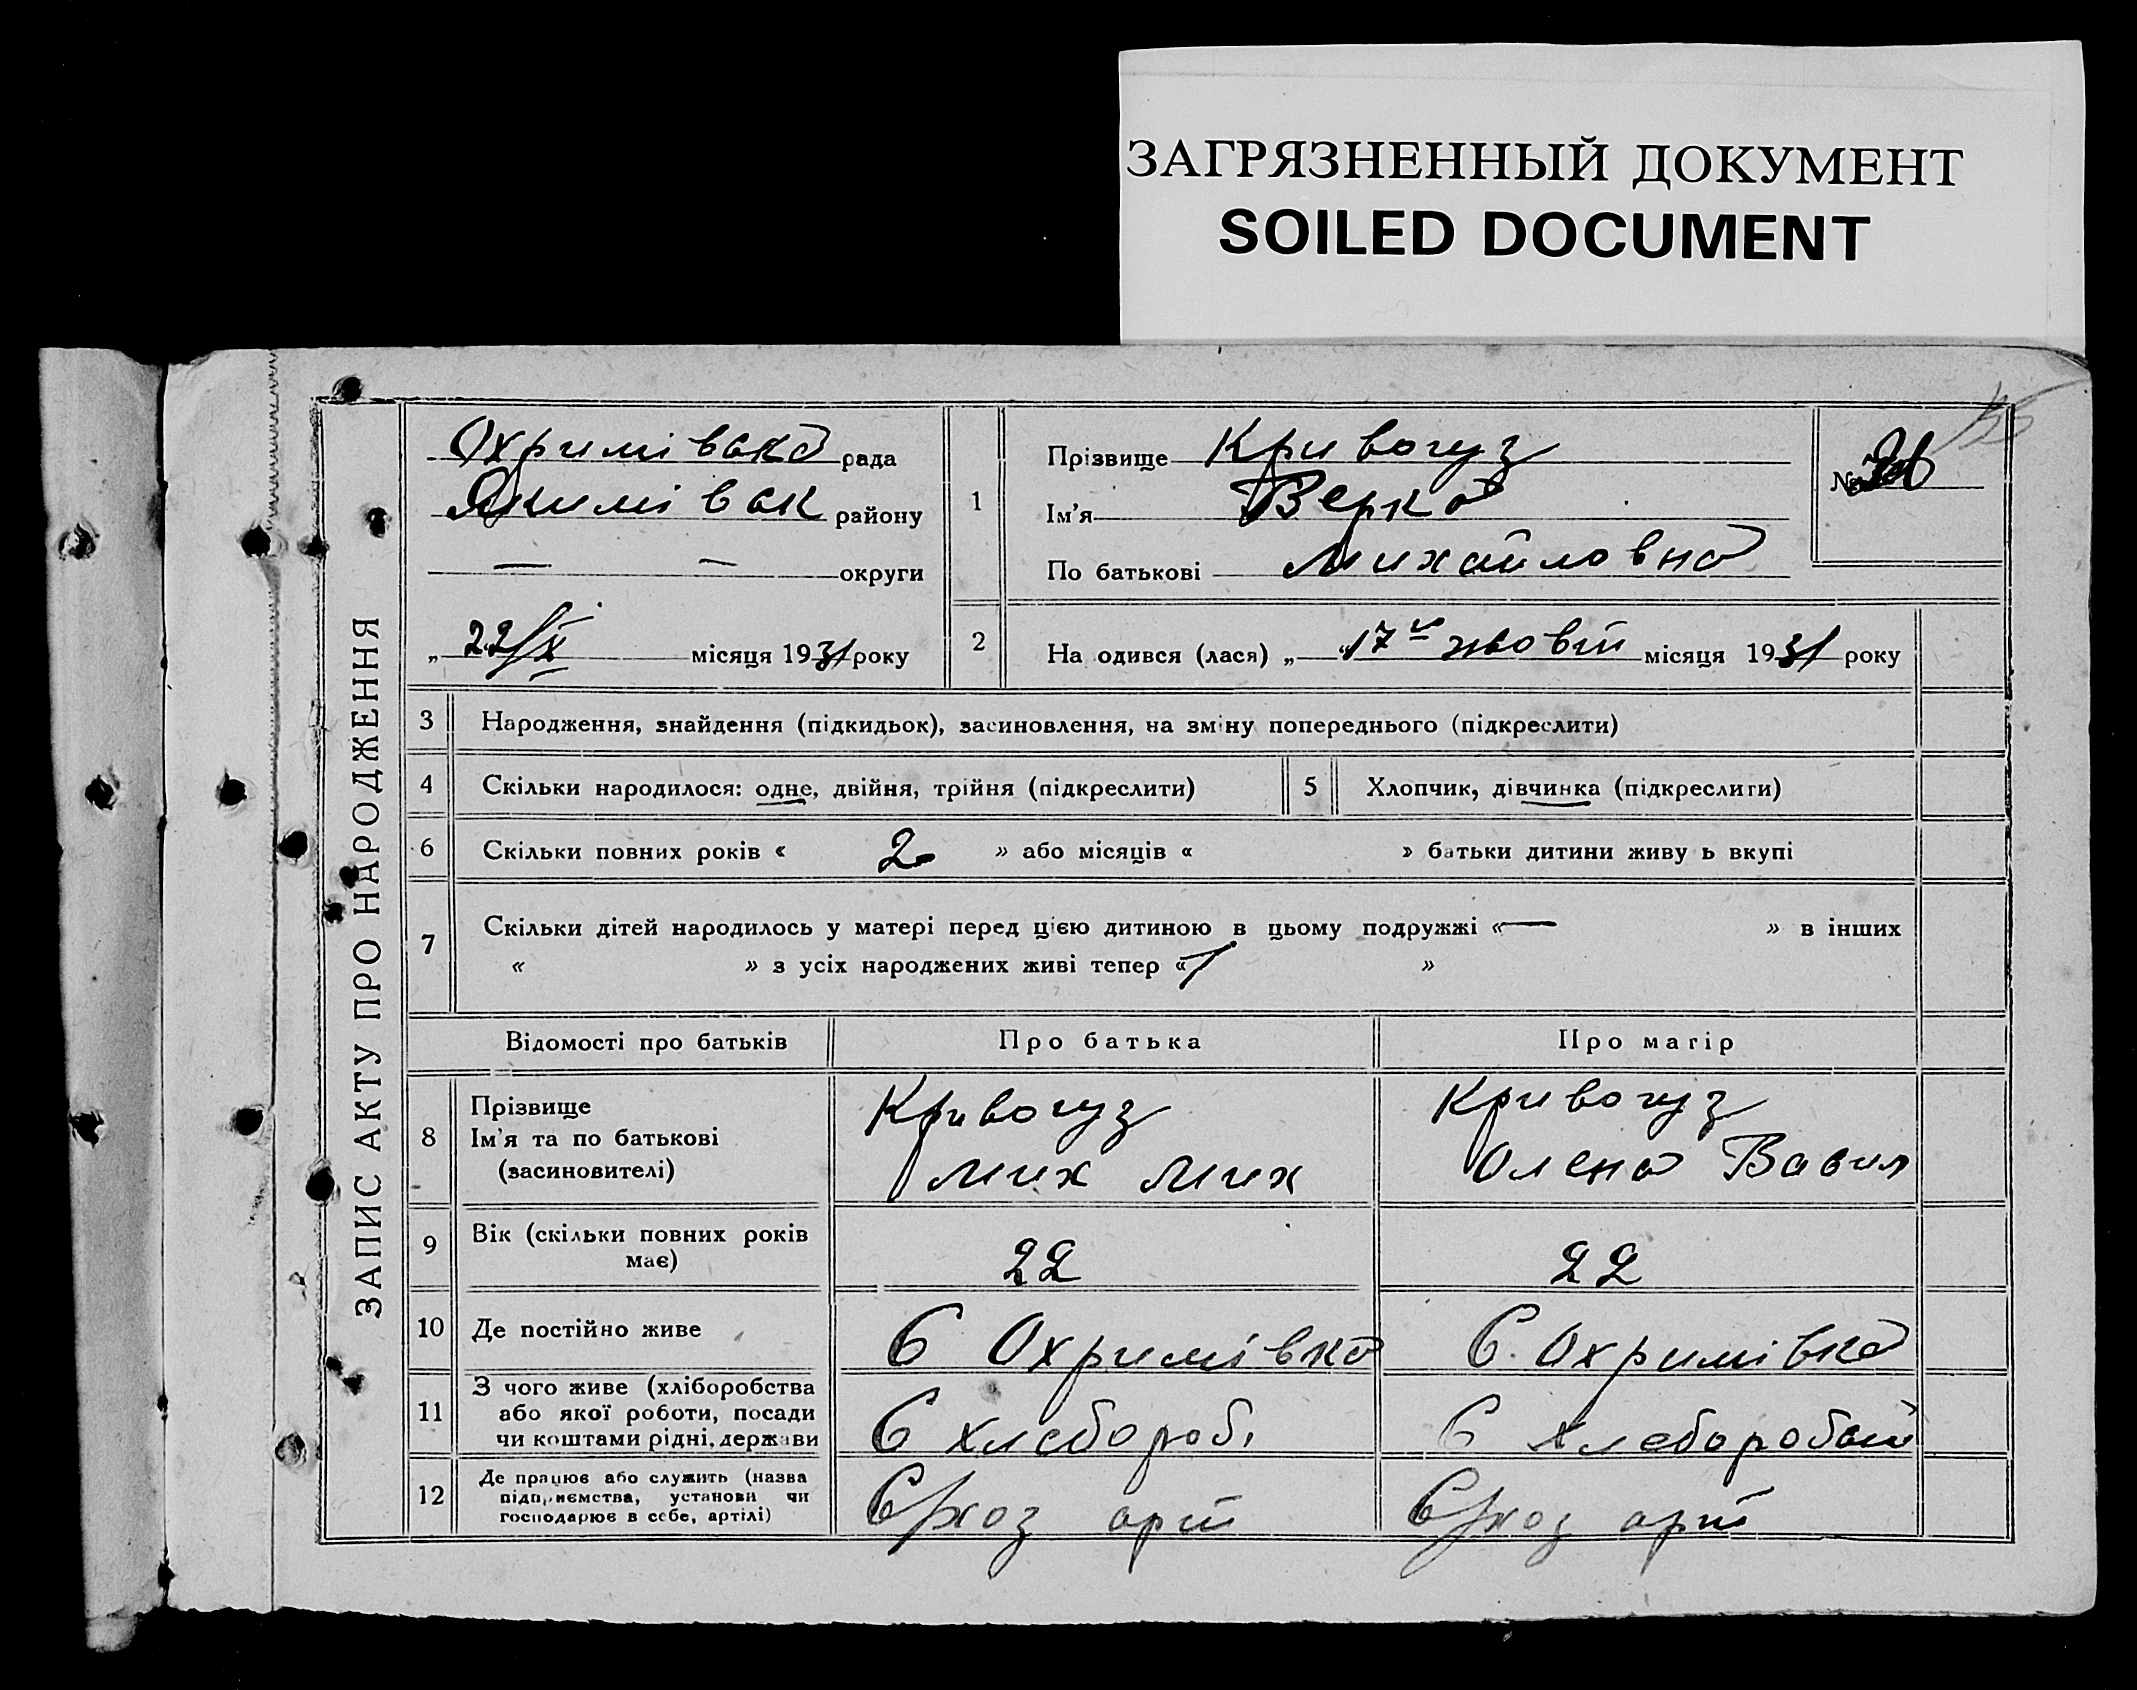 ЗАГРЯЗНЕННЫЙ ДОКУМЕНТ
SOILED DOCUMENT
ЗАПИС АКТУ ПРО НАРОДЖЕННЯ
Охримівська рада
Якимівськ району
— — округи
„ 22/X місяця 1931 року
1
Прізвище Кривогуз
Ім'я Верка
По батькові Михайловна
№
2
На одився (лася) „ 17го жовт місяця 1931 року
3 Народження, знайдення (підкидьок), засиновлення, на зміну попереднього (підкреслити)
4 Скільки народилося: одне, двійня, трійня (підкреслити)
5 Хлопчик, дівчинка (підкреслити)
6 Скільки повних років « 2 » або місяців « » батьки дитини живу ь вкупі
7 Скільки дітей народилось у матері перед цією дитиною в цьому подружжі « — » в інших
« » з усіх народжених живі тепер « 1 »
Відомості про батьків Про батька Про матір
8 Прізвище
Ім'я та по батькові
(засиновителі)
Кривогуз
Мих Мих
Кривогуз
Олена Вавил
9 Вік (скільки повних років
має)
22 22
10 Де постійно живе С Охримівка С. Охримівка
11 З чого живе (хліборобства
або якої роботи, посади
чи коштами рідні, держави
С хлебороб. С хлеборобст
12 Де працює або служить (назва
підприємства, установи чи
господарює в себе, артілі)
С/хоз арт С/хоз арт